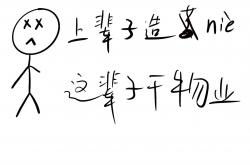 上辈子造nie
这辈子干物业